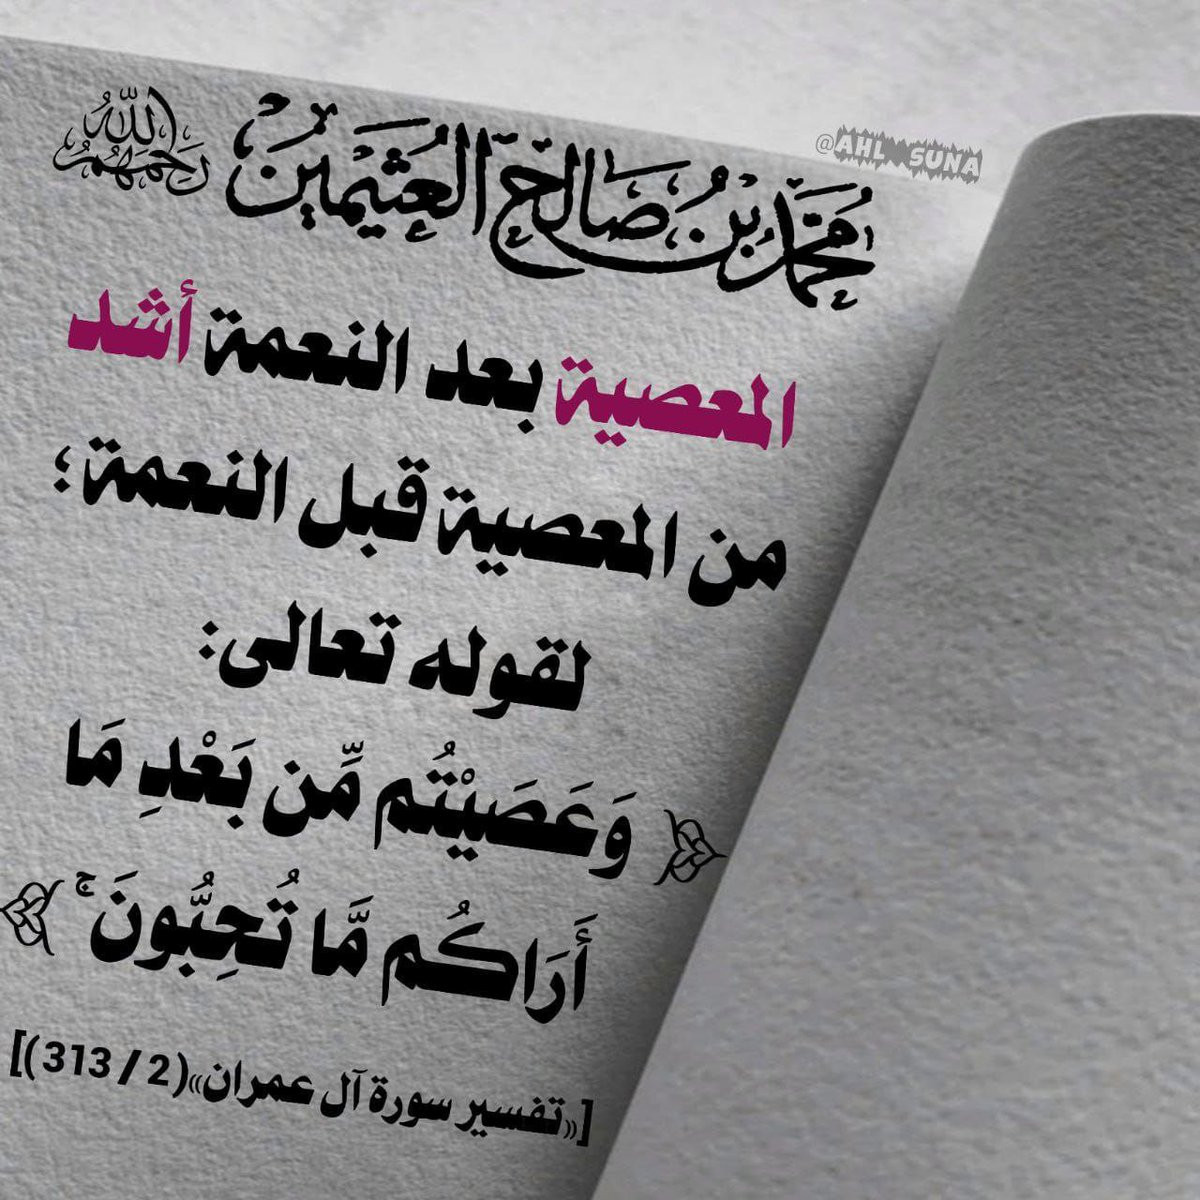 @AHL SUNA
محمد بن صالح العثيمين رحمهم الله
المعصية بعد النعمة أشد
من المعصية قبل النعمة؛
لقوله تعالى:
﴿ وَعَصَيْتُم مِّن بَعْدِ مَا
أَرَاكُم مَّا تُحِبُّونَ ۚ ﴾
[«تفسير سورة آل عمران»(2 / 313)]